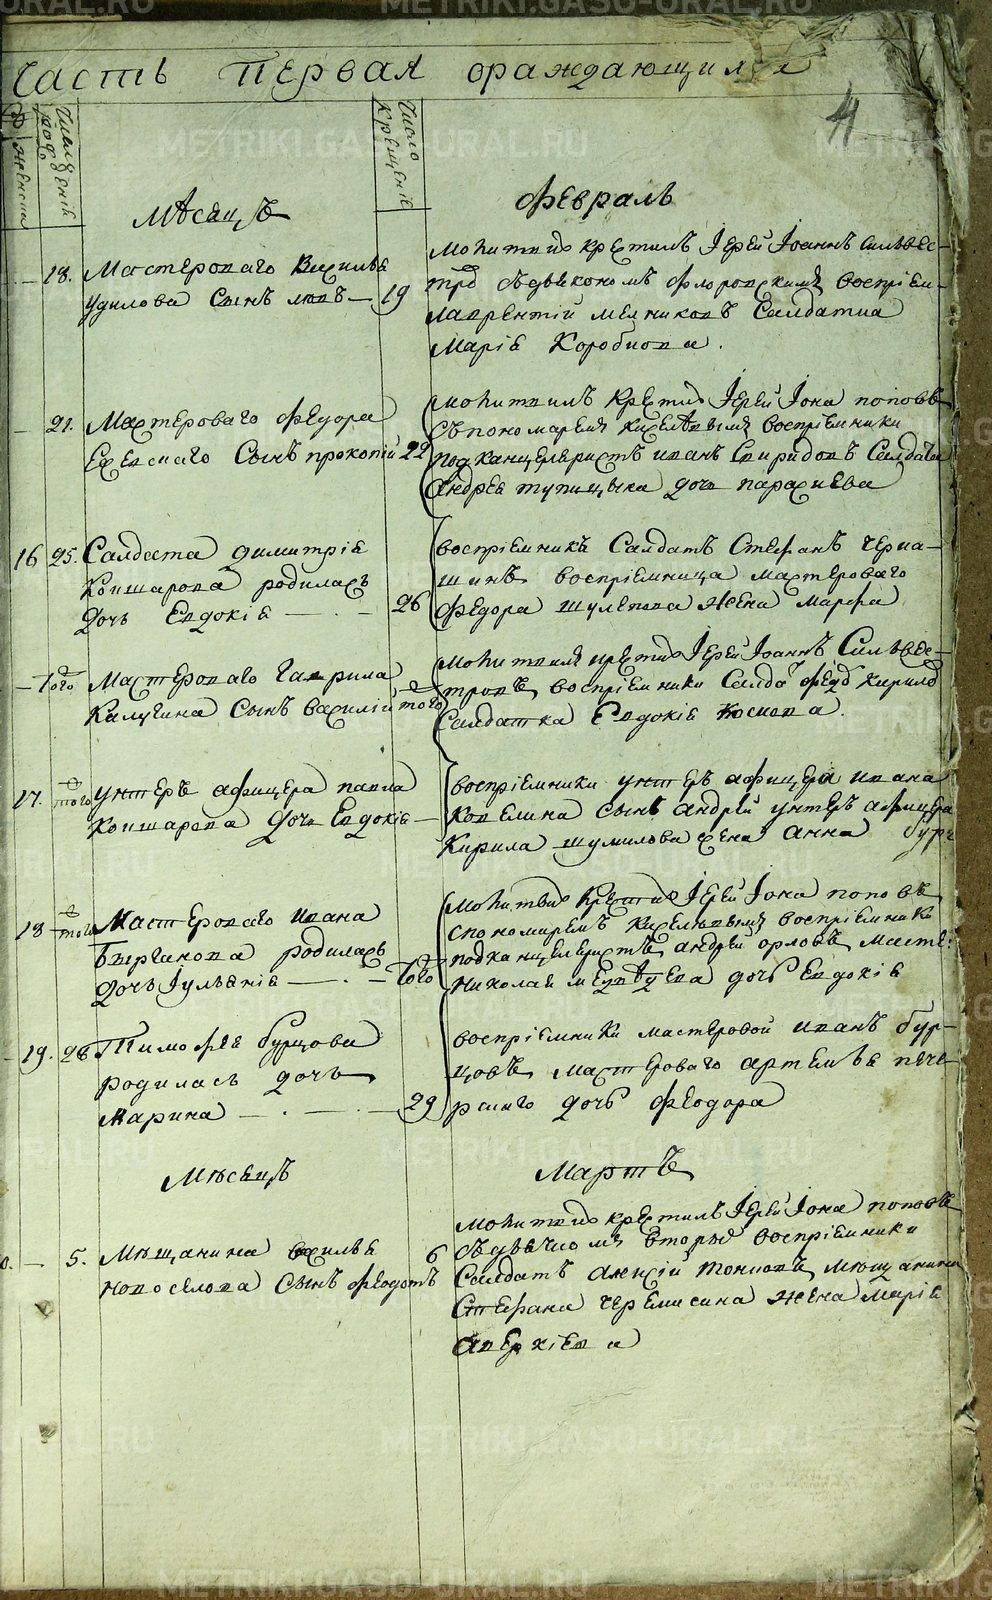 Часть первая ораждающихся
4
женска
Число рожденiе
Число крещенiе
Мѣсецъ
Февраль
18. Мастероваго Василье
удилова сынъ левъ — 19
Молитвил крестилъ Iерей Iоаннъ сильвес-
тро съдьякономъ флоровскимъ воспрiем-
лаврентiй мелниковъ Салдатка
Марiе Коробкова.
21. Мастероваго Федора
сынъ прокопiй 22
Молитвилъ крестил Iерей Iона поповъ
съ пономаремъ киселѣвымъ воспрiемники
подканцеляристъ иванъ Свиридовъ Салдата
андрея тупицына дочь парасиева
16 25. Салдата димитрiе
Копшарова родиласъ
дочь Евдокiе — 26
воспрiемникъ Салдатъ Стефанъ черна-
шинъ воспрiемница мастероваго
Федора шулепова жена марфа
— Того Мастероваго гаврила
Калугина сынъ василiй того
Молитвилъ крестил Iерей Iоаннъ Сильвес-
тровъ воспрiемники Салда федо кирило
Салдатка Евдокiе Коскова.
17. того унтеръ афицера павла
Копшарова дочь Евдокiе —
воспрiемники унтеръ афицера ивана
Ковелина сынъ андрей унтеръ афицера
Кирила шумилова жена анна
18 того Мастероваго ивана
родилась
дочь Iульянiе — Того
Молитвил крестил Iерей Iона поповъ
спономаремъ киселѣвымъ воспрiемники
подканцеляристъ андрей орловъ масте:
николая медвѣдева дочь Евдокiе
19. 26 Тимофея бурцова
родилась дочь
Марина — 29
воспрiемники мастеровой иванъ бур-
цовъ мастероваго артемье пече-
рскаго дочь феодора
Мѣсецъ
Мартъ
5. Мѣщанина василье 6
новоселова сынъ феодотъ
Молитвил крестилъ Iерей Iона поповъ
съдьячкомъ вторы воспрiемники
Салдатъ алексiй мѣщанина
Стефана черемисина жена марiе
аверкiева